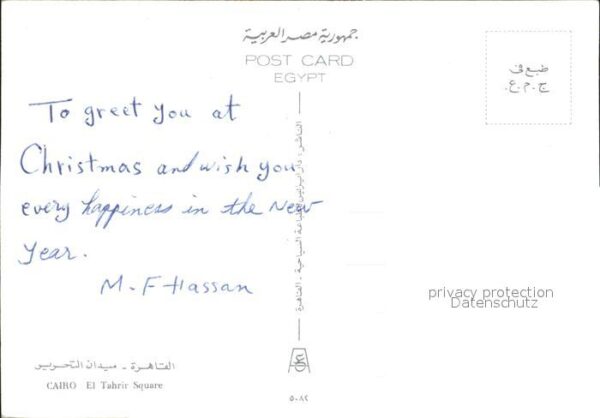 جمهورية مصر العربية
POST CARD
EGYPT
طبع فى
ج.م.ع.
To greet you at
Christmas and wish you
every happiness in the New
Year.
M. F Hassan
privacy protection
Datenschutz
القاهرة - ميدان التحرير
CAIRO El Tahrir Square
٥٠٨٢